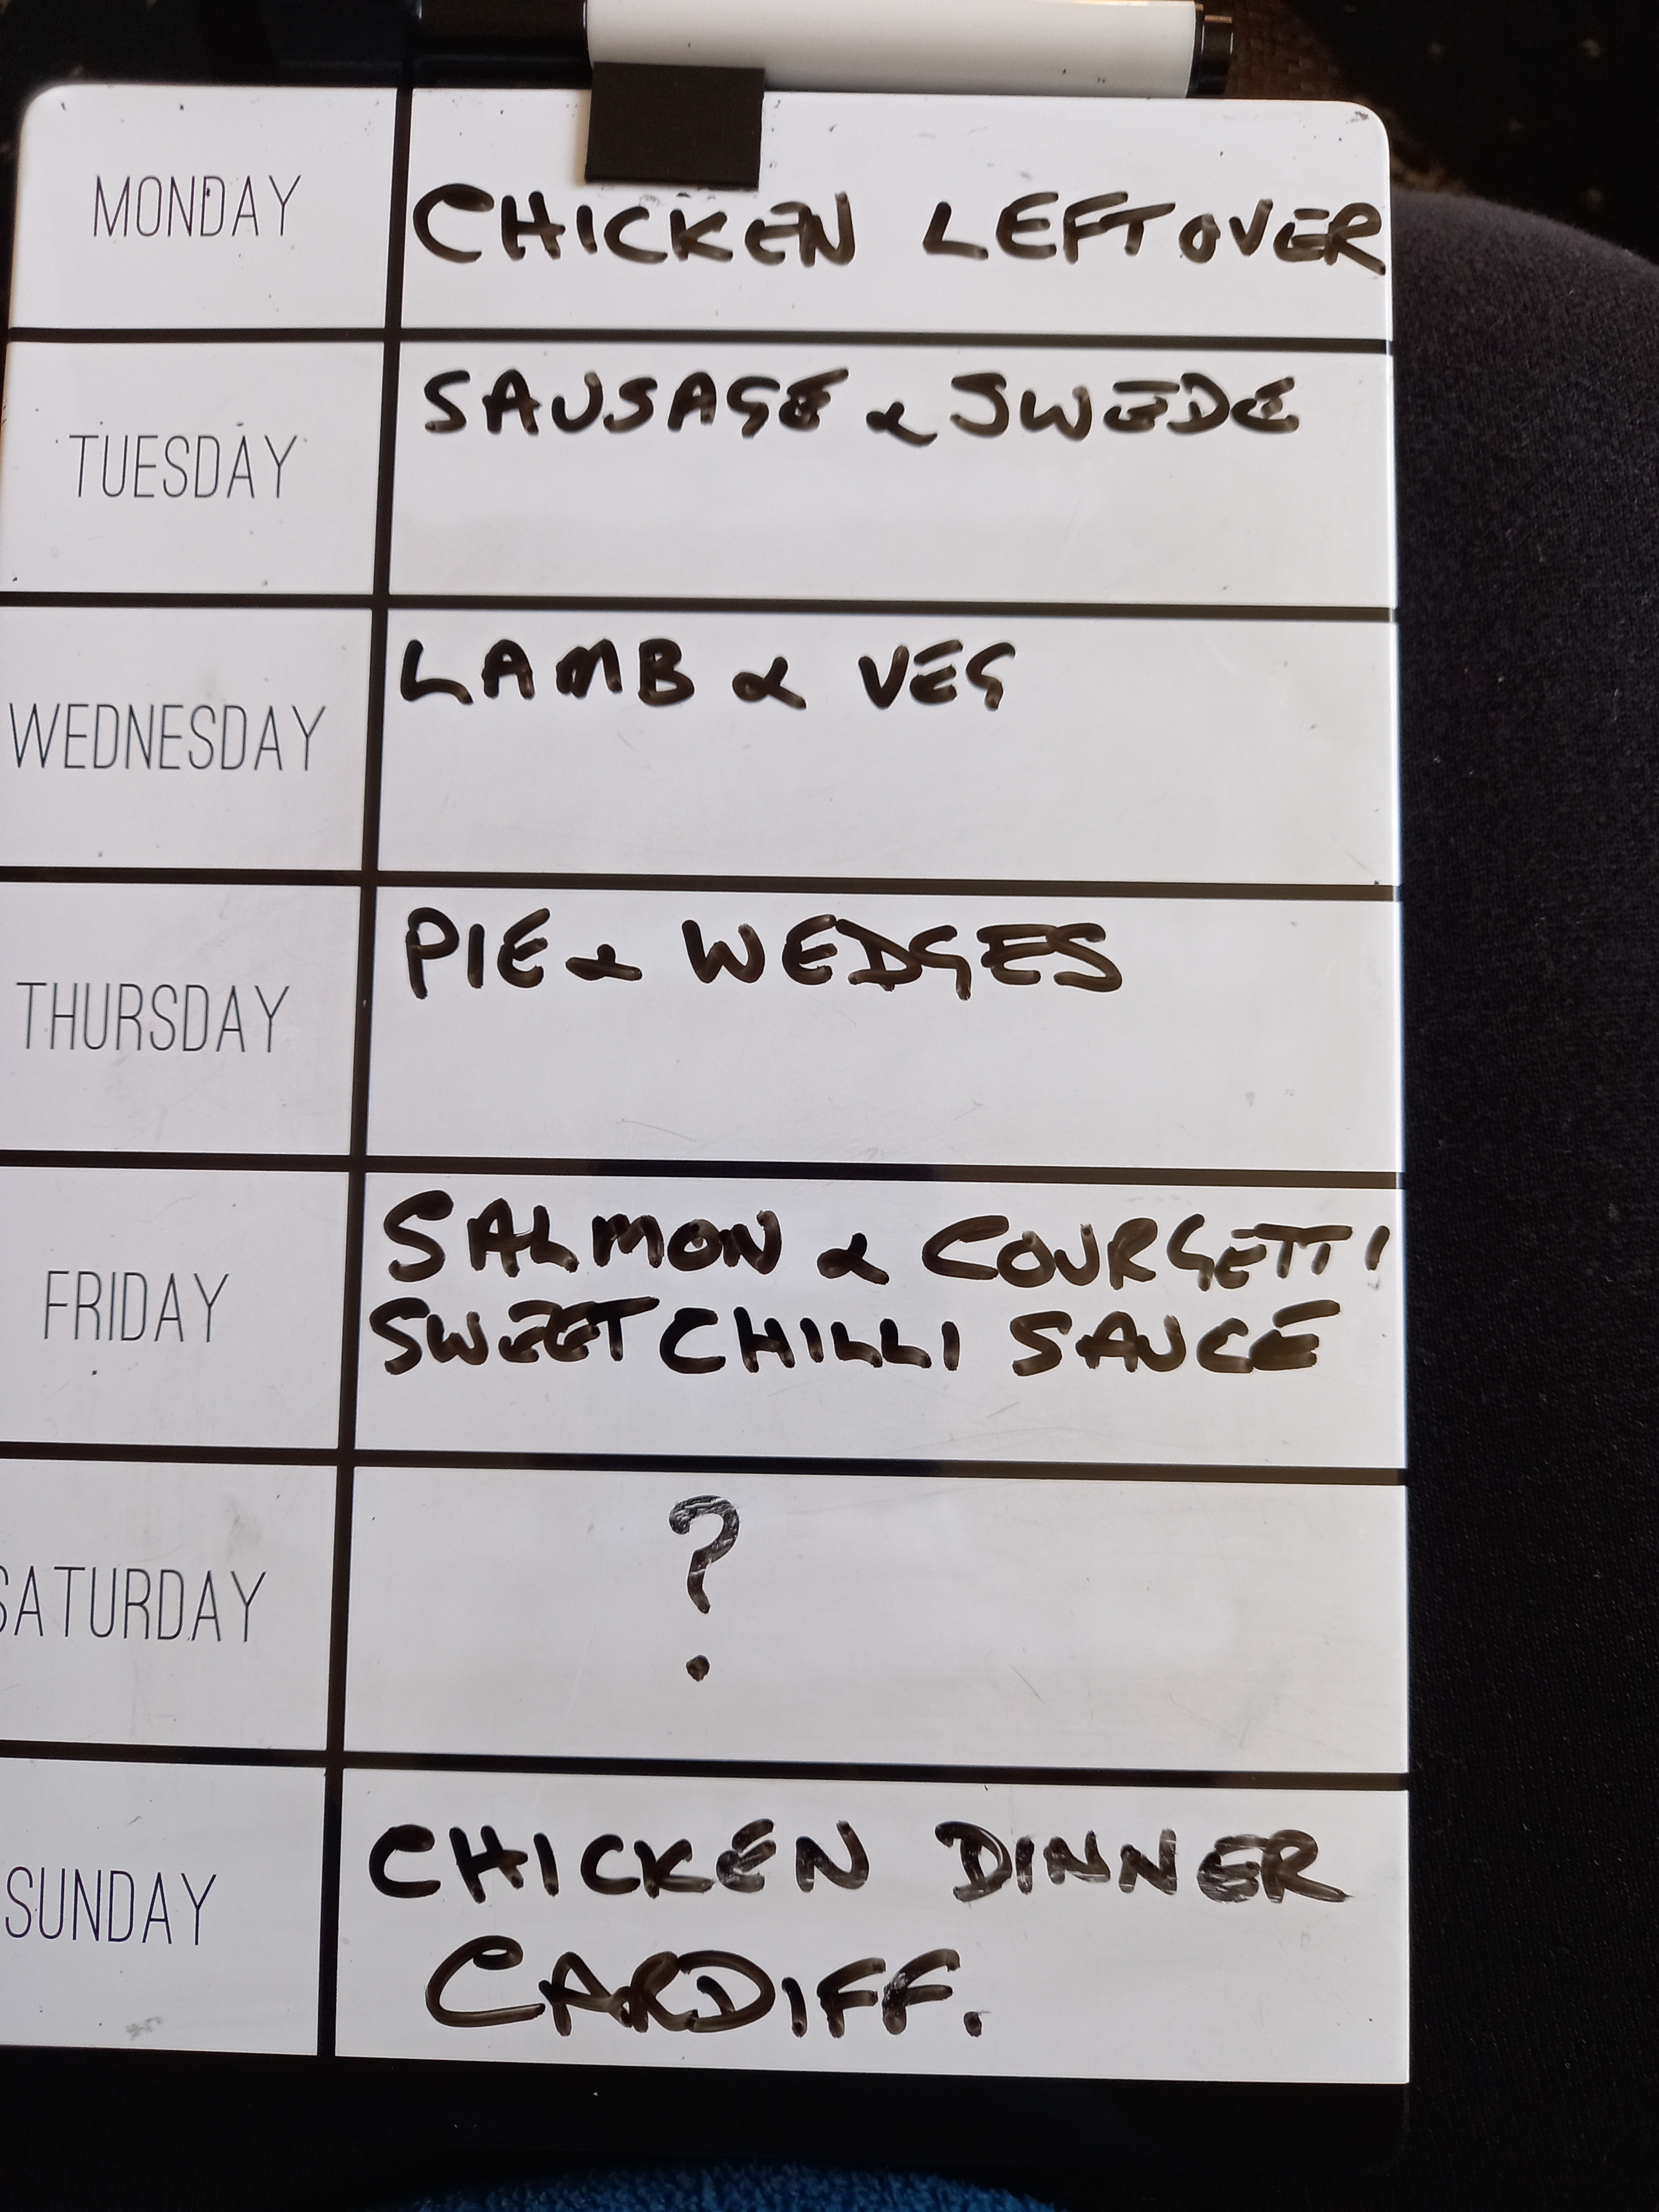 MONDAY
CHICKEN LEFTOVER
TUESDAY
SAUSAGE & SWEDE
WEDNESDAY
LAMB & VEG
THURSDAY
PIE & WEDGES
FRIDAY
SALMON & COURGETTI
SWEET CHILLI SAUCE
SATURDAY
?
SUNDAY
CHICKEN DINNER
CARDIFF.